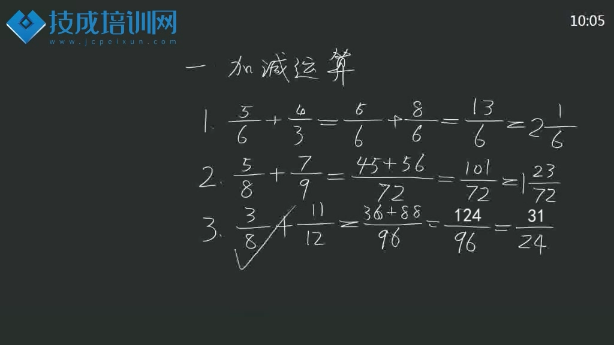 技成培训网
www.jcpeixun.com
10:05
一 加减运算
1. 5/6 + 4/3 = 5/6 + 8/6 = 13/6 = 2 1/6
2. 5/8 + 7/9 = 45+56/72 = 101/72 = 1 23/72
3. 3/8 + 11/12 = 36+88/96 = 124/96 = 31/24